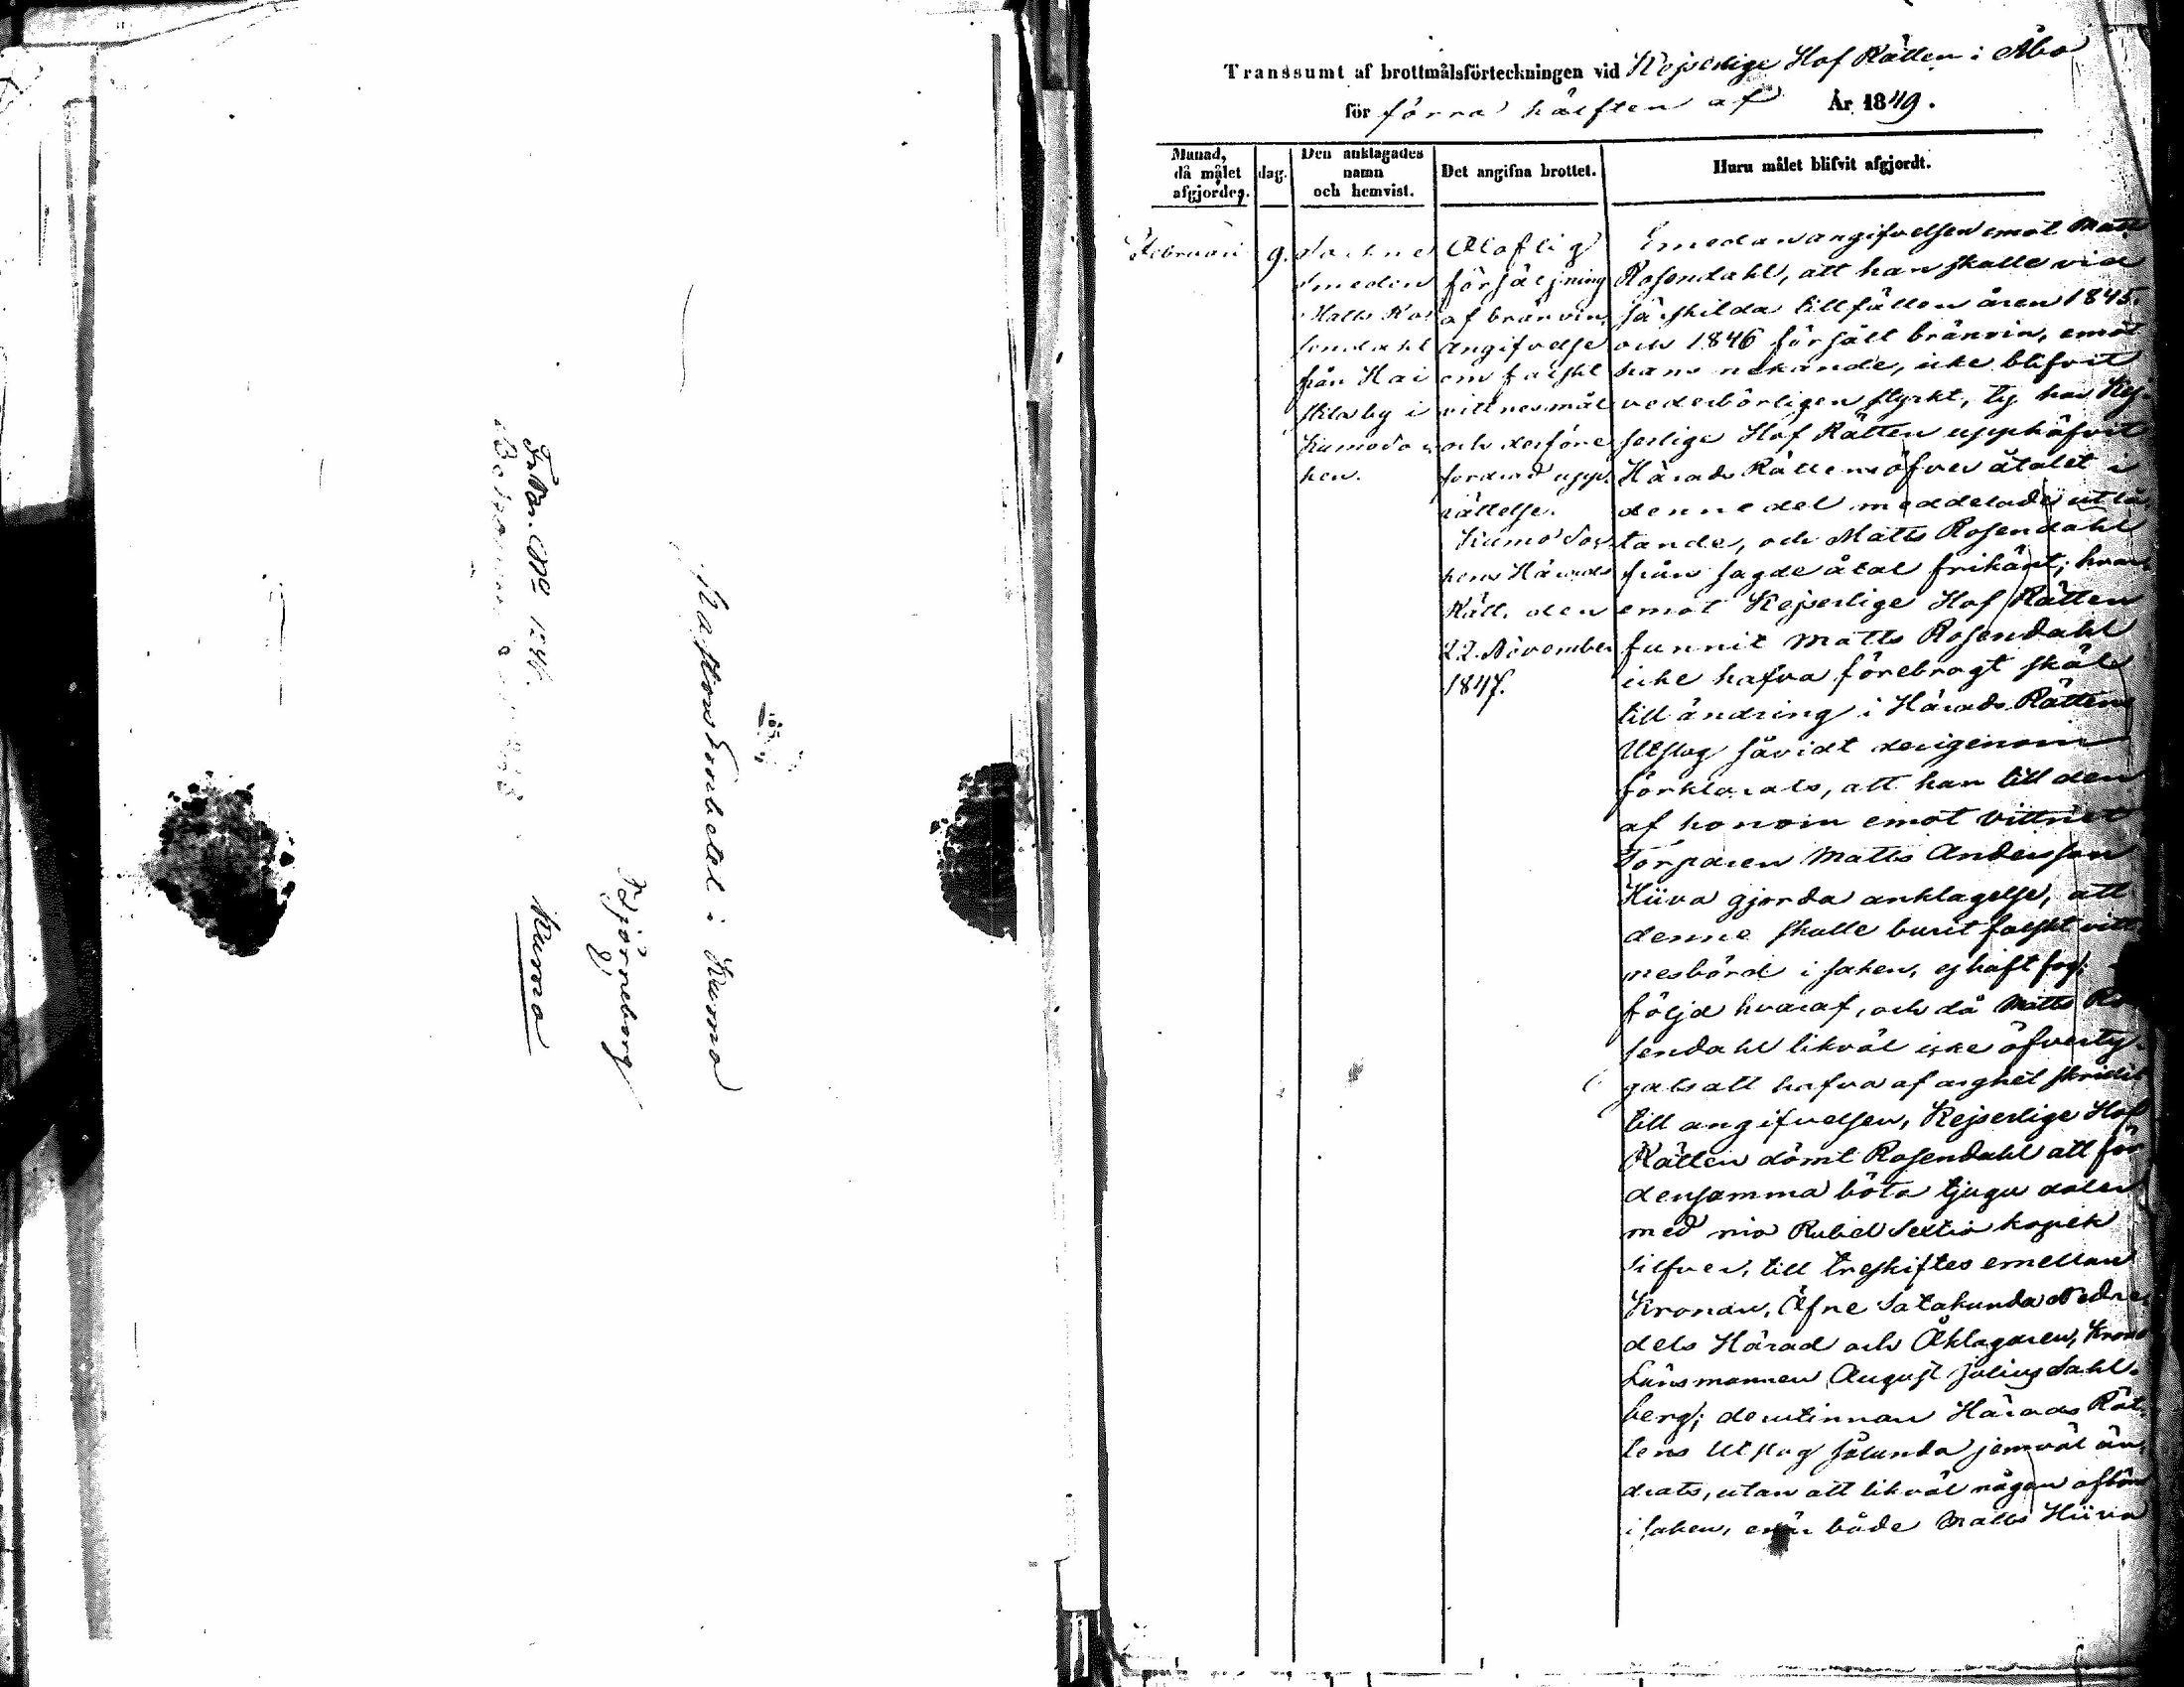 Pastors Embetet i Kumo
Björneborg
Kumo
Transsumt af brottmålsförteckningen vid Kejserlige Hof Rätten i Åbo
för förra hälften af År 1849.
Månad, då målet afgjordes.
dag.
Den anklagades namn och hemvist.
Det angifna brottet.
Huru målet blifvit afgjordt.
Februari
9.
Sockne
smeden
Matts Ro-
sendahl
från Hai
stila by i
Kumo soc
ken.
Olaflig
försäljning
af bränvin,
angifvelse
om falskt
vittnesmål
och derföre
fordrad upp-
rättelse.
Kumo Soc-
kens Härads
Rätt, den
22. November
1847.
Emedan angifvelsen emot Matts
Rosendahl, att han skulle vid
särskilda tillfällen åren 1845.
och 1846 försålt bränvin, emot
hans nekande, icke blifvit
vederbörligen styrkt, ty har Kej-
serlige Hof Rätten upphäfvit
Härads Rättens öfver åtalet i
denne del meddelade utlå-
tande, och Matts Rosendahl
från sagde åtal frikänt; hvar-
emot Kejserlige Hof Rätten
funnit Matts Rosendahl
icke hafva förebragt skäl
till ändring i Härads Rättens
Utslag såvidt derigenom
förklarats, att han till den
af honom emot vittnet
Torparen Matts Andersson
Hiiva gjorda anklagelse, att
denne skulle burit falskt vitt-
nesbörd i saken, ej haft fog;
följd hvaraf, och då Matts Ro-
sendahl likväl icke öfverty-
gats att hafva af arghet skridit
till angifvelsen, Kejserlige Hof
Rätten dömt Rosendahl att för
densamma böta tjugu daler
med nio Rubel Sextio kopek
silfver, till treskiftes emellan
Kronan, Öfre Satakunda Nedre
dels Härad och Åklagaren, Krono
Länsmannen August Julius Sahl-
berg; derutinnan Härads Rät-
tens Utslag sålunda jemväl än-
drats, utan att likväl någon afbön
i saken, enär både Matts Hiiva